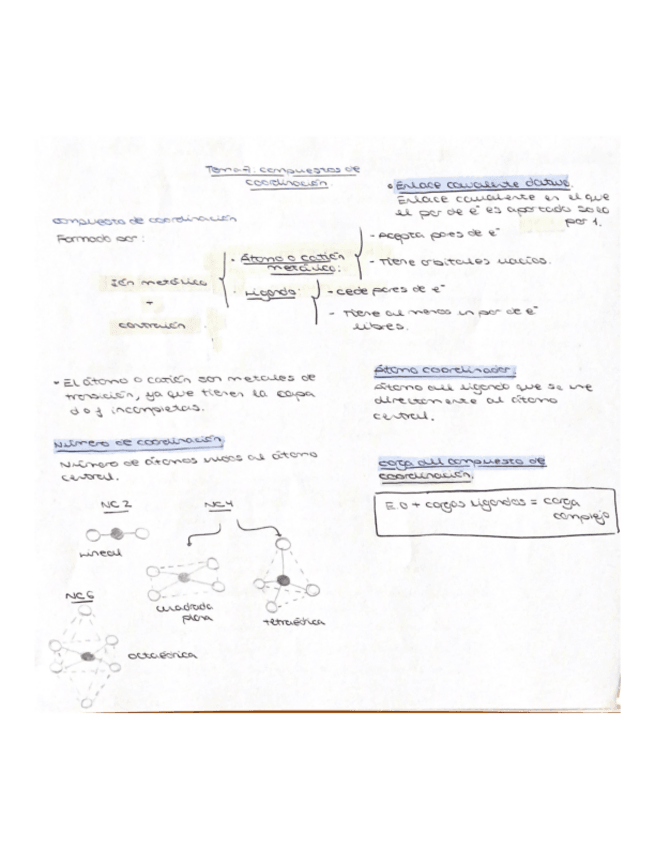 Tema 7: compuestos de
coordinación.
compuesto de coordinación
Formado por:
Ión metálico
+
contraión
- Átomo o catión
metálico:
- Acepta pares de e⁻
- Tiene orbitales vacíos.
· Ligando:
- cede pares de e⁻
- Tiene al menos un par de e⁻
libres.
• Enlace covalente dativo.
Enlace covalente en el que
el par de e⁻ es aportado solo
por 1.
- El átomo o catión son metales de
transición, ya que tienen la capa
d o f incompletas.
Átomo coordinador.
Átomo del ligando que se une
directamente al átomo
central.
Número de coordinación.
Número de átomos unidos al átomo
central.
carga del compuesto de
coordinación.
E.O + cargas ligandos = carga
complejo
NC 2
lineal
NC 4
cuadrada
plana
tetraédrica
NC 6
octaédrica